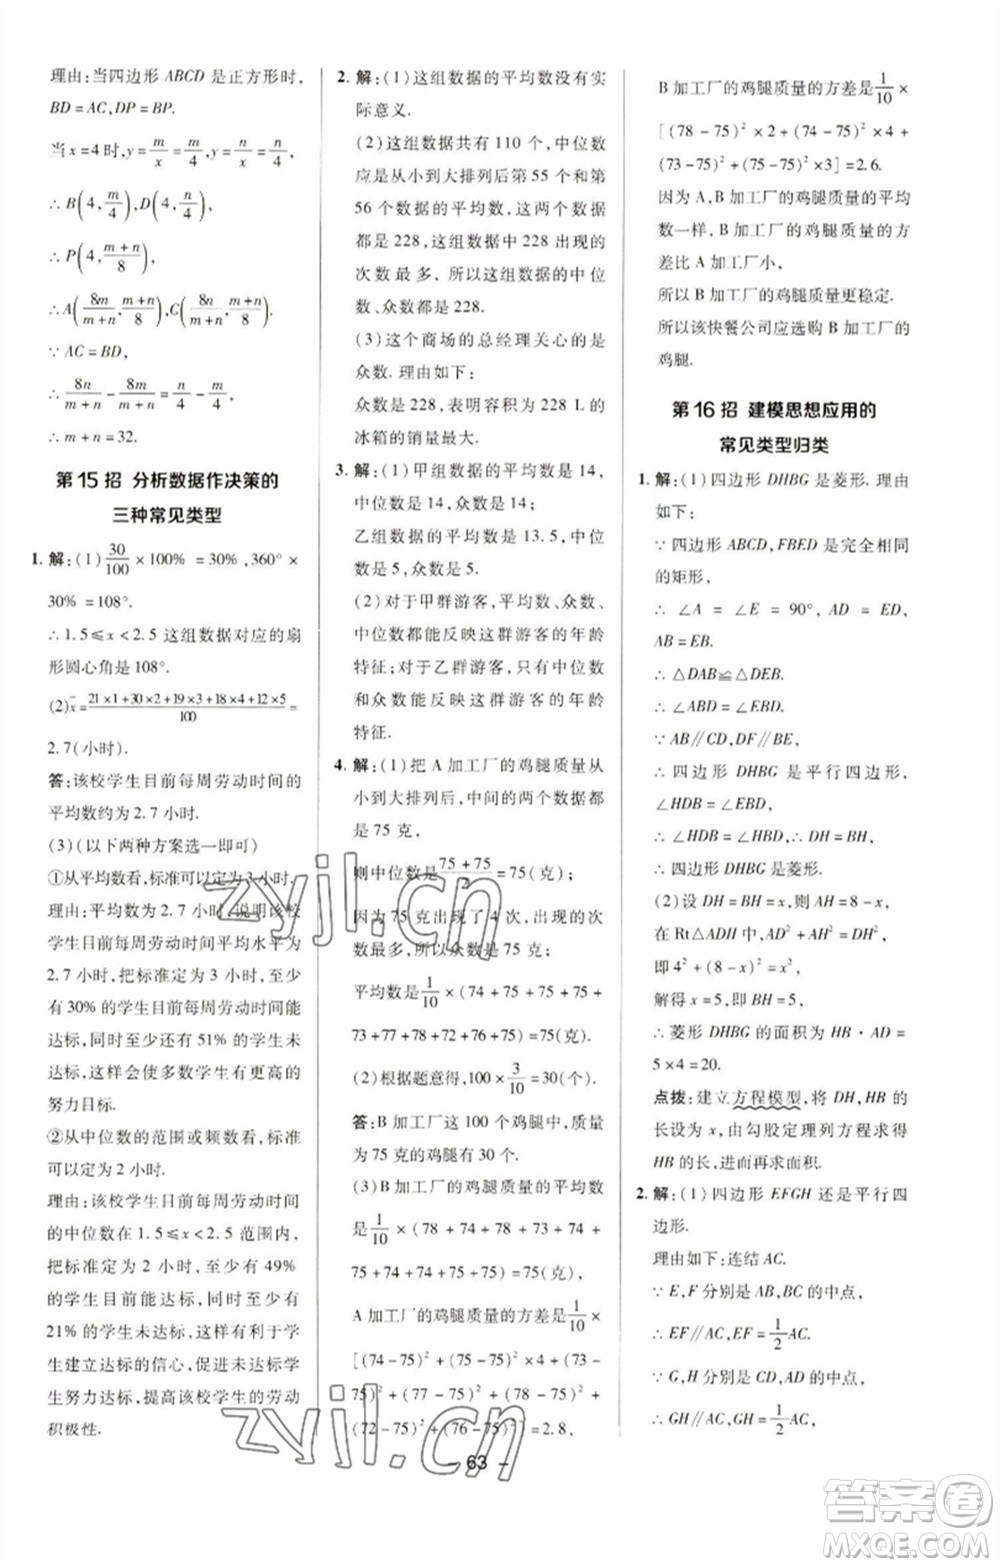 理由:当四边形 ABCD 是正方形时,
BD = AC,DP = BP.
当 x = 4 时,y = m/x = m/4, y = n/x = n/4,
∴ B(4, m/4), D(4, n/4),
∴ P(4, (m+n)/8),
∴ A(8m/(m+n), (m+n)/8), C(8n/(m+n), (m+n)/8).
∵ AC = BD,
∴ 8n/(m+n) − 8m/(m+n) = n/4 − m/4,
∴ m + n = 32.
第 15 招 分析数据作决策的
三种常见类型
1. 解:(1) 30/100 × 100% = 30%,360° ×
30% = 108°.
∴ 1.5 ≤ x < 2.5 这组数据对应的扇
形圆心角是 108°.
(2) x̄ = (21×1+30×2+19×3+18×4+12×5)/100 =
2.7(小时).
答:该校学生目前每周劳动时间的
平均数约为 2.7 小时.
(3)(以下两种方案选一即可)
①从平均数看,标准可以定为 3 小时.
理由:平均数为 2.7 小时,说明该校
学生目前每周劳动时间平均水平为
2.7 小时,把标准定为 3 小时,至少
有 30% 的学生目前每周劳动时间能
达标,同时至少还有 51% 的学生未
达标,这样会使多数学生有更高的
努力目标.
②从中位数的范围或频数看,标准
可以定为 2 小时.
理由:该校学生目前每周劳动时间
的中位数在 1.5 ≤ x < 2.5 范围内,
把标准定为 2 小时,至少有 49% 的
学生目前能达标,同时至少还有
21% 的学生未达标,这样有利于学
生建立达标的信心,促进未达标学
生努力达标,提高该校学生的劳动
积极性.
2. 解:(1)这组数据的平均数没有实
际意义.
(2)这组数据共有 110 个,中位数
应是从小到大排列后第 55 个和第
56 个数据的平均数,这两个数据
都是 228,这组数据中 228 出现的
次数最多. 所以这组数据的中位
数、众数都是 228.
(3)这个商场的总经理关心的是
众数. 理由如下:
众数是 228,表明容积为 228 L 的
冰箱的销量最大.
3. 解:(1)甲组数据的平均数是 14,
中位数是 14,众数是 14,
乙组数据的平均数是 13.5,中位
数是 5,众数是 5.
(2)对于甲群游客,平均数、众数、
中位数都能反映这群游客的年龄
特征;对于乙群游客,只有中位数
和众数能反映这群游客的年龄
特征.
4. 解:(1)把 A 加工厂的鸡腿质量从
小到大排列后,中间的两个数据都
是 75 克,
则中位数是 (75+75)/2 = 75(克),
因为 75 克出现了 4 次,出现的次数
最多,所以众数是 75 克.
平均数是 1/10 × (74 + 75 + 75 + 75 +
73 + 77 + 78 + 72 + 76 + 75) = 75(克).
(2)根据题意得,100 × 3/10 = 30(个).
答:B 加工厂的 100 个鸡腿中,质量
为 75 克的鸡腿有 30 个.
(3) B 加工厂的鸡腿质量的平均数
是 1/10 × (78 + 74 + 78 + 73 + 74 +
75 + 74 + 74 + 75 + 75) = 75(克),
A 加工厂的鸡腿质量的方差是 1/10 ×
[(74 − 75)² + (75 − 75)² × 4 + (73 −
75)² + (77 − 75)² + (78 − 75)² +
(72 − 75)² + (76 − 75)²] = 2.8,
B 加工厂的鸡腿质量的方差是 1/10 ×
[(78 − 75)² × 2 + (74 − 75)² × 4 +
(73 − 75)² + (75 − 75)² × 3] = 2.6.
因为 A,B 加工厂的鸡腿质量的平均
数一样,B 加工厂的鸡腿质量的方
差比 A 加工厂小,
所以 B 加工厂的鸡腿质量更稳定.
所以该快餐公司应选购 B 加工厂的
鸡腿.
第 16 招 建模思想应用的
常见类型归类
1. 解:(1)四边形 DHBG 是菱形. 理由
如下:
∵ 四边形 ABCD,FBED 是完全相同
的矩形,
∴ ∠A = ∠E = 90°,AD = ED,
AB = EB.
∴ △DAB ≌ △DEB.
∴ ∠ABD = ∠EBD.
∵ AB∥CD,DF∥BE,
∴ 四边形 DHBG 是平行四边形,
∠HDB = ∠EBD.
∴ ∠HDB = ∠HBD,∴ DH = BH,
∴ 四边形 DHBG 是菱形.
(2)设 DH = BH = x,则 AH = 8 − x,
在 Rt△ADH 中,AD² + AH² = DH²,
即 4² + (8 − x)² = x²,
解得 x = 5,即 BH = 5,
∴ 菱形 DHBG 的面积为 HB · AD =
5 × 4 = 20.
点拨:建立方程模型,将 DH,HB 的
长设为 x,由勾股定理列方程求得
HB 的长,进而再求面积.
2. 解:(1)四边形 EFGH 还是平行四
边形.
理由如下:连结 AC.
∵ E,F 分别是 AB,BC 的中点,
∴ EF∥AC,EF = 1/2 AC.
∵ G,H 分别是 CD,AD 的中点,
∴ GH∥AC,GH = 1/2 AC.
- 63 -
zyjl.cn
zyjl.cn
答案圈
MXQE.COM